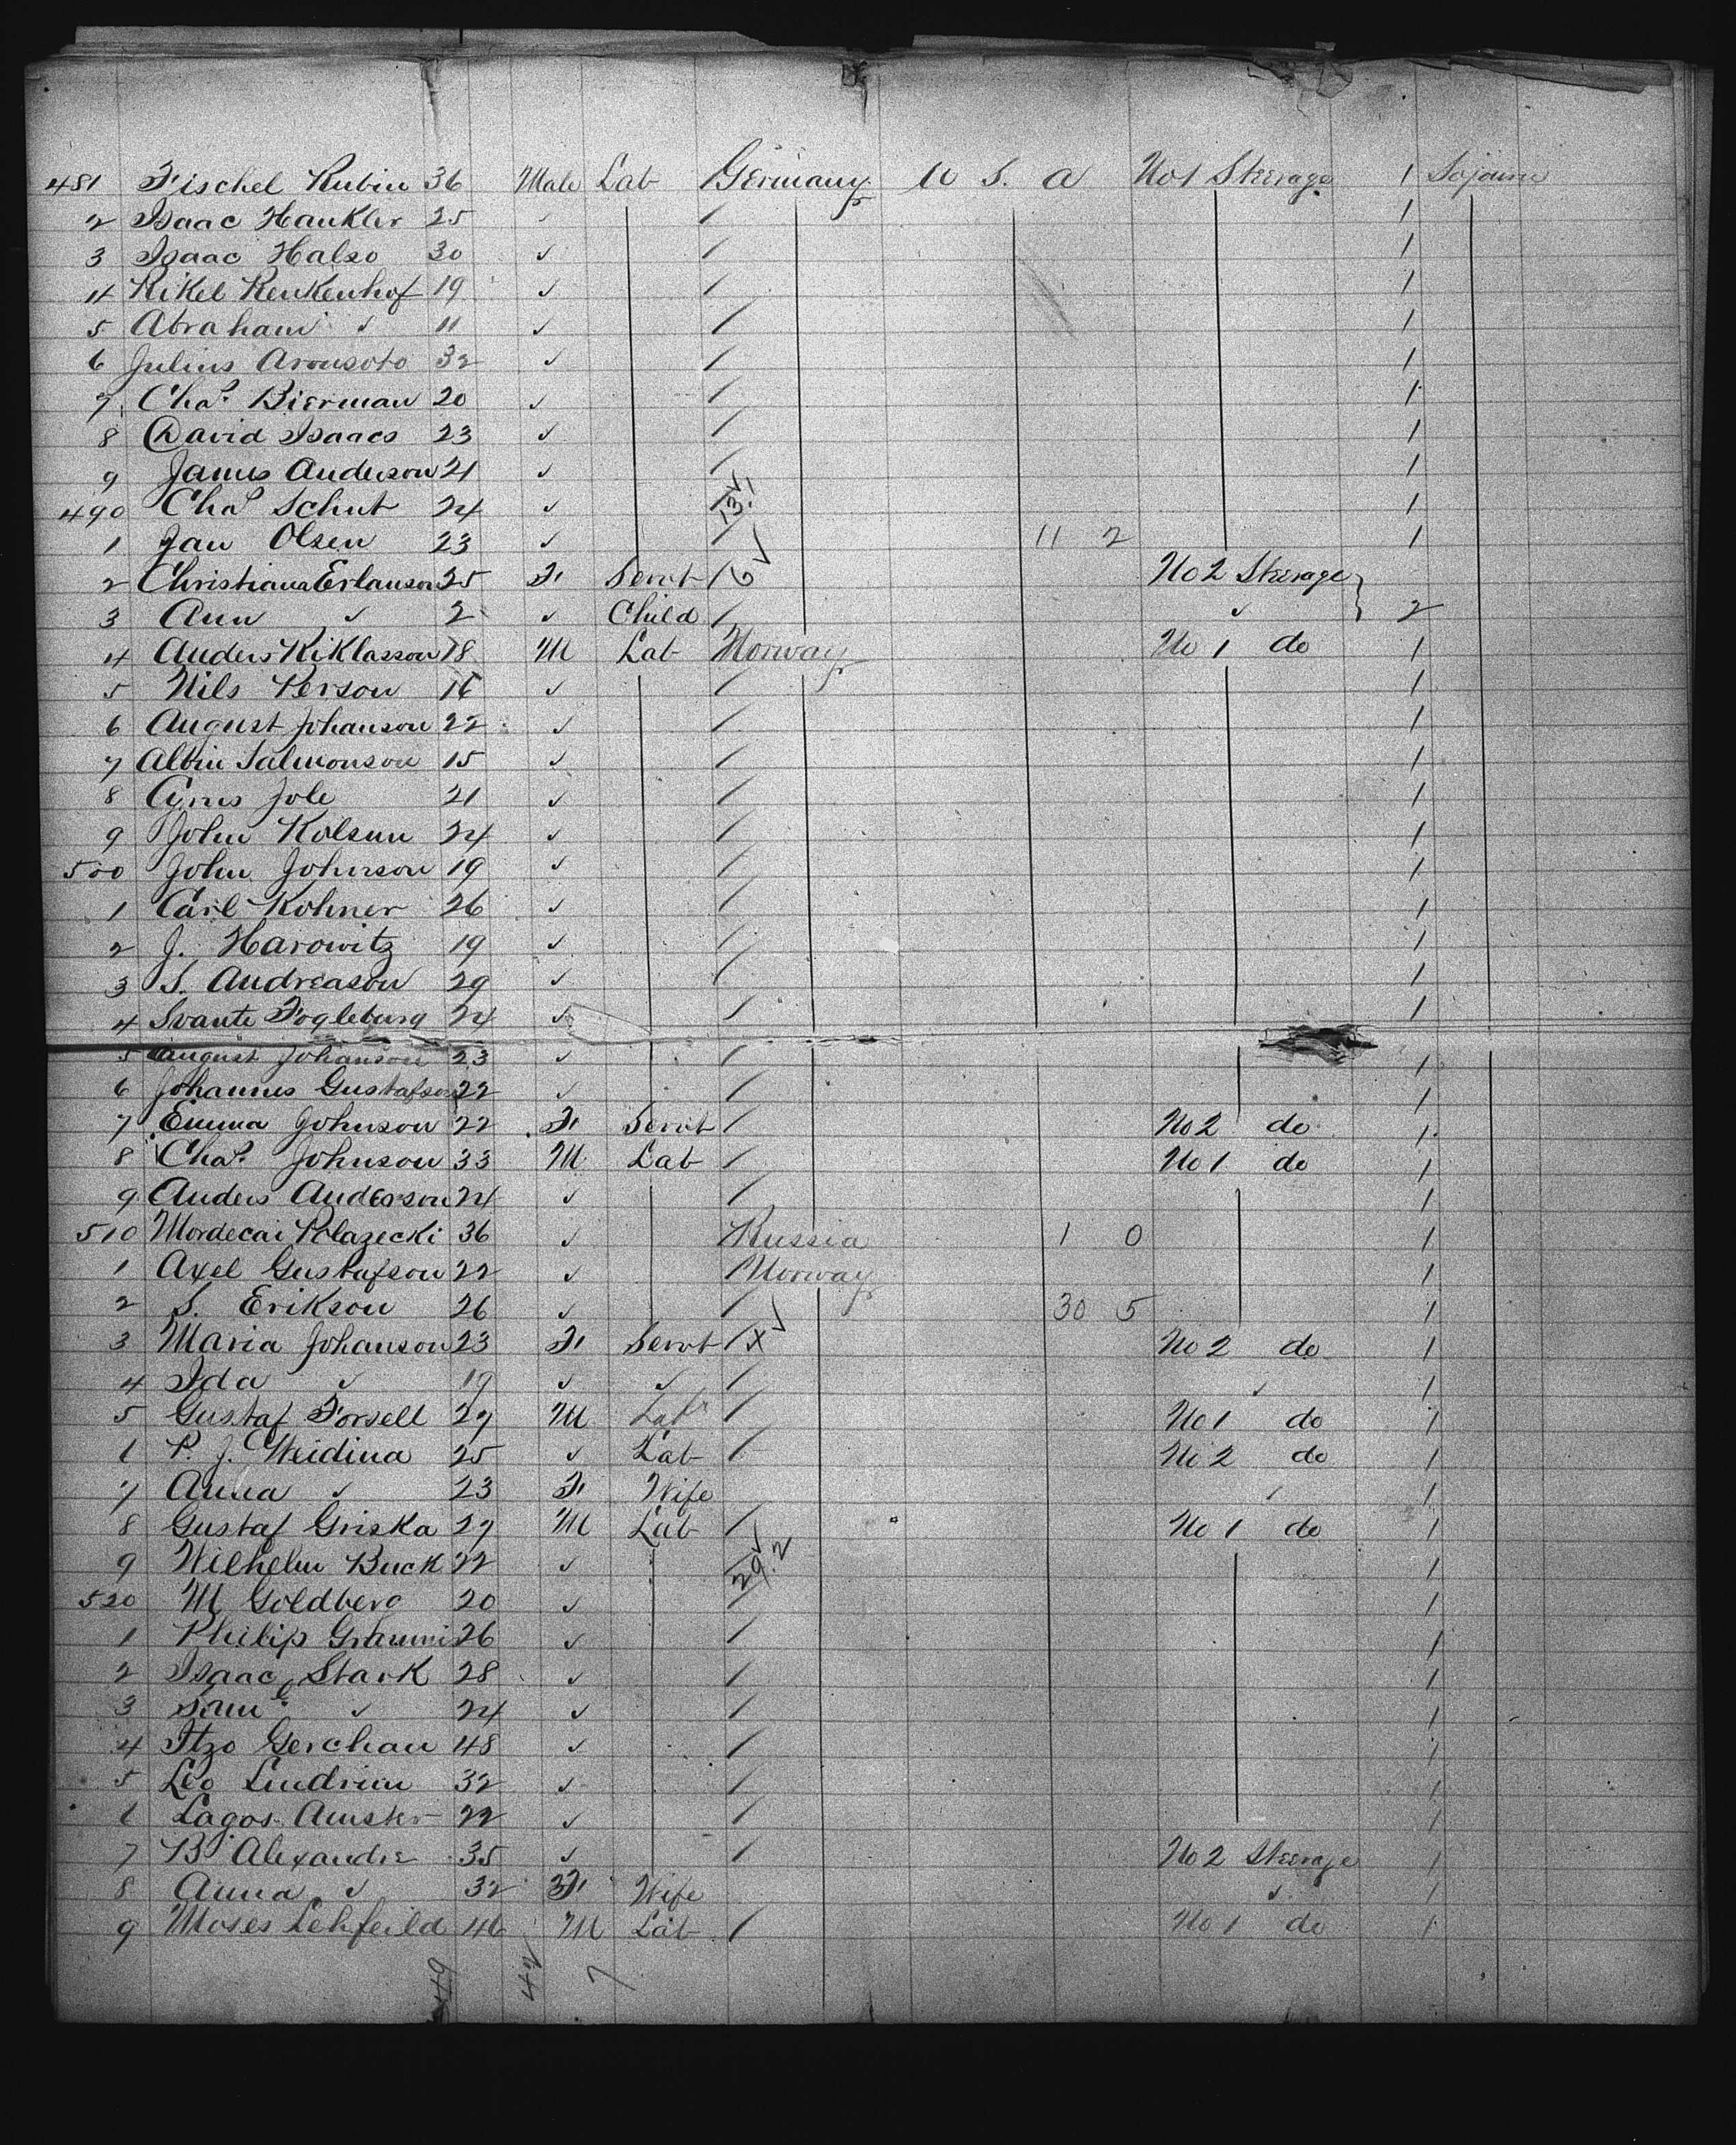 481 Fischel Rubin 36 Male Lab Germany U S. A No 1 Steerage 1 Sojourn
2 Isaac Haukler 25 ✓ / 1
3 Isaac Halso 30 ✓ / 1
4 Rikel Renkenhof 19 ✓ / 1
5 Abraham ✓ 11 ✓ / 1
6 Julius Aronsoto 32 ✓ / 1
7 Chas. Bierman 20 ✓ / 1
8 David Isaacs 23 ✓ / 1
9 James Anderson 21 ✓ / 1
490 Chas Schut 24 ✓ / 13.1 1
1 Jan Olsen 23 ✓ / 11 2 1
2 Christiana Erlanson 25 F Servt / 6 No 2 Steerage
3 Ann ✓ 2 ✓ Child / ✓ 2
4 Anders Kiklasson 18 M Lab Norway No 1 do 1
5 Nils Person 16 ✓ / 1
6 August Johanson 22 ✓ / 1
7 Albin Salmonson 15 ✓ / 1
8 Cyrus Jole 21 ✓ / 1
9 John Kolsun 24 ✓ / 1
500 John Johnson 19 ✓ / 1
1 Carl Kohner 26 ✓ / 1
2 J. Harowitz 19 ✓ / 1
3 S. Andreason 29 ✓ / 1
4 Svante Fogleburg 24 ✓ / 1
5 August Johanson 23 ✓ / 1
6 Johannes Gustafson 22 ✓ / 1
7 Emma Johnson 22 F Servt / No 2 do 1
8 Chas. Johnson 33 M Lab / No 1 do 1
9 Anders Anderson 24 ✓ / 1
510 Mordecai Polazecki 36 ✓ Russia 1 0 1
1 Axel Gustafson 22 ✓ Norway 1
2 S. Erikson 26 ✓ / 30 5 1
3 Maria Johanson 23 F Servt / x No 2 do 1
4 Ida ✓ 19 ✓ ✓ / ✓ 1
5 Gustaf Forsell 27 M Lab / No 1 do 1
6 P. J. Weidina 25 ✓ Lab / No 2 do 1
7 Anna ✓ 23 F Wife ✓ 1
8 Gustaf Griska 27 M Lab / No 1 do 1
9 Wilhelm Buck 22 ✓ / 29.2 1
520 M Goldberg 20 ✓ / 1
1 Philip 26 ✓ / 1
2 Isaac Stark 28 ✓ / 1
3 Saml ✓ 24 ✓ / 1
4 Itzo Gerchan 48 ✓ / 1
5 Leo 32 ✓ / 1
6 Lagos Amster 22 ✓ / 1
7 B Alexandre 35 ✓ / No 2 Steerage 1
8 Anna ✓ 32 F Wife ✓ 1
9 Moses Lehfeild 46 M Lab / No 1 do 1
49 42 7